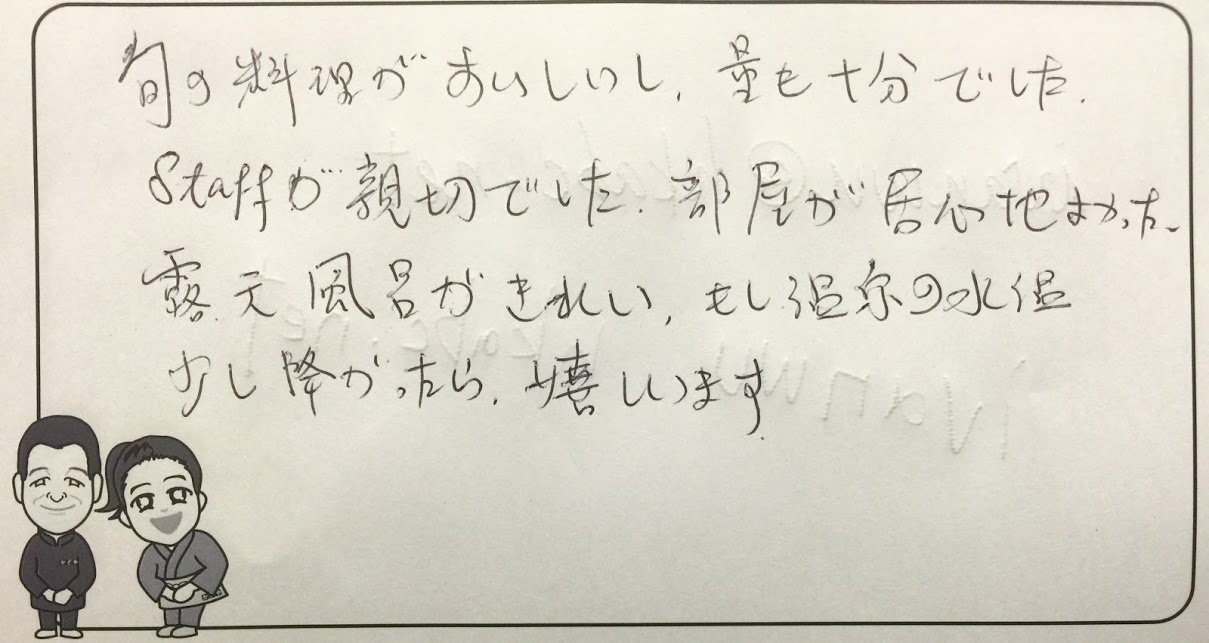 旬の料理がおいしいし、量も十分でした.
Staffが親切でした. 部屋が居心地よかった.
露天風呂がきれい, もし温泉の水温
少し降がったら, 嬉しいます.